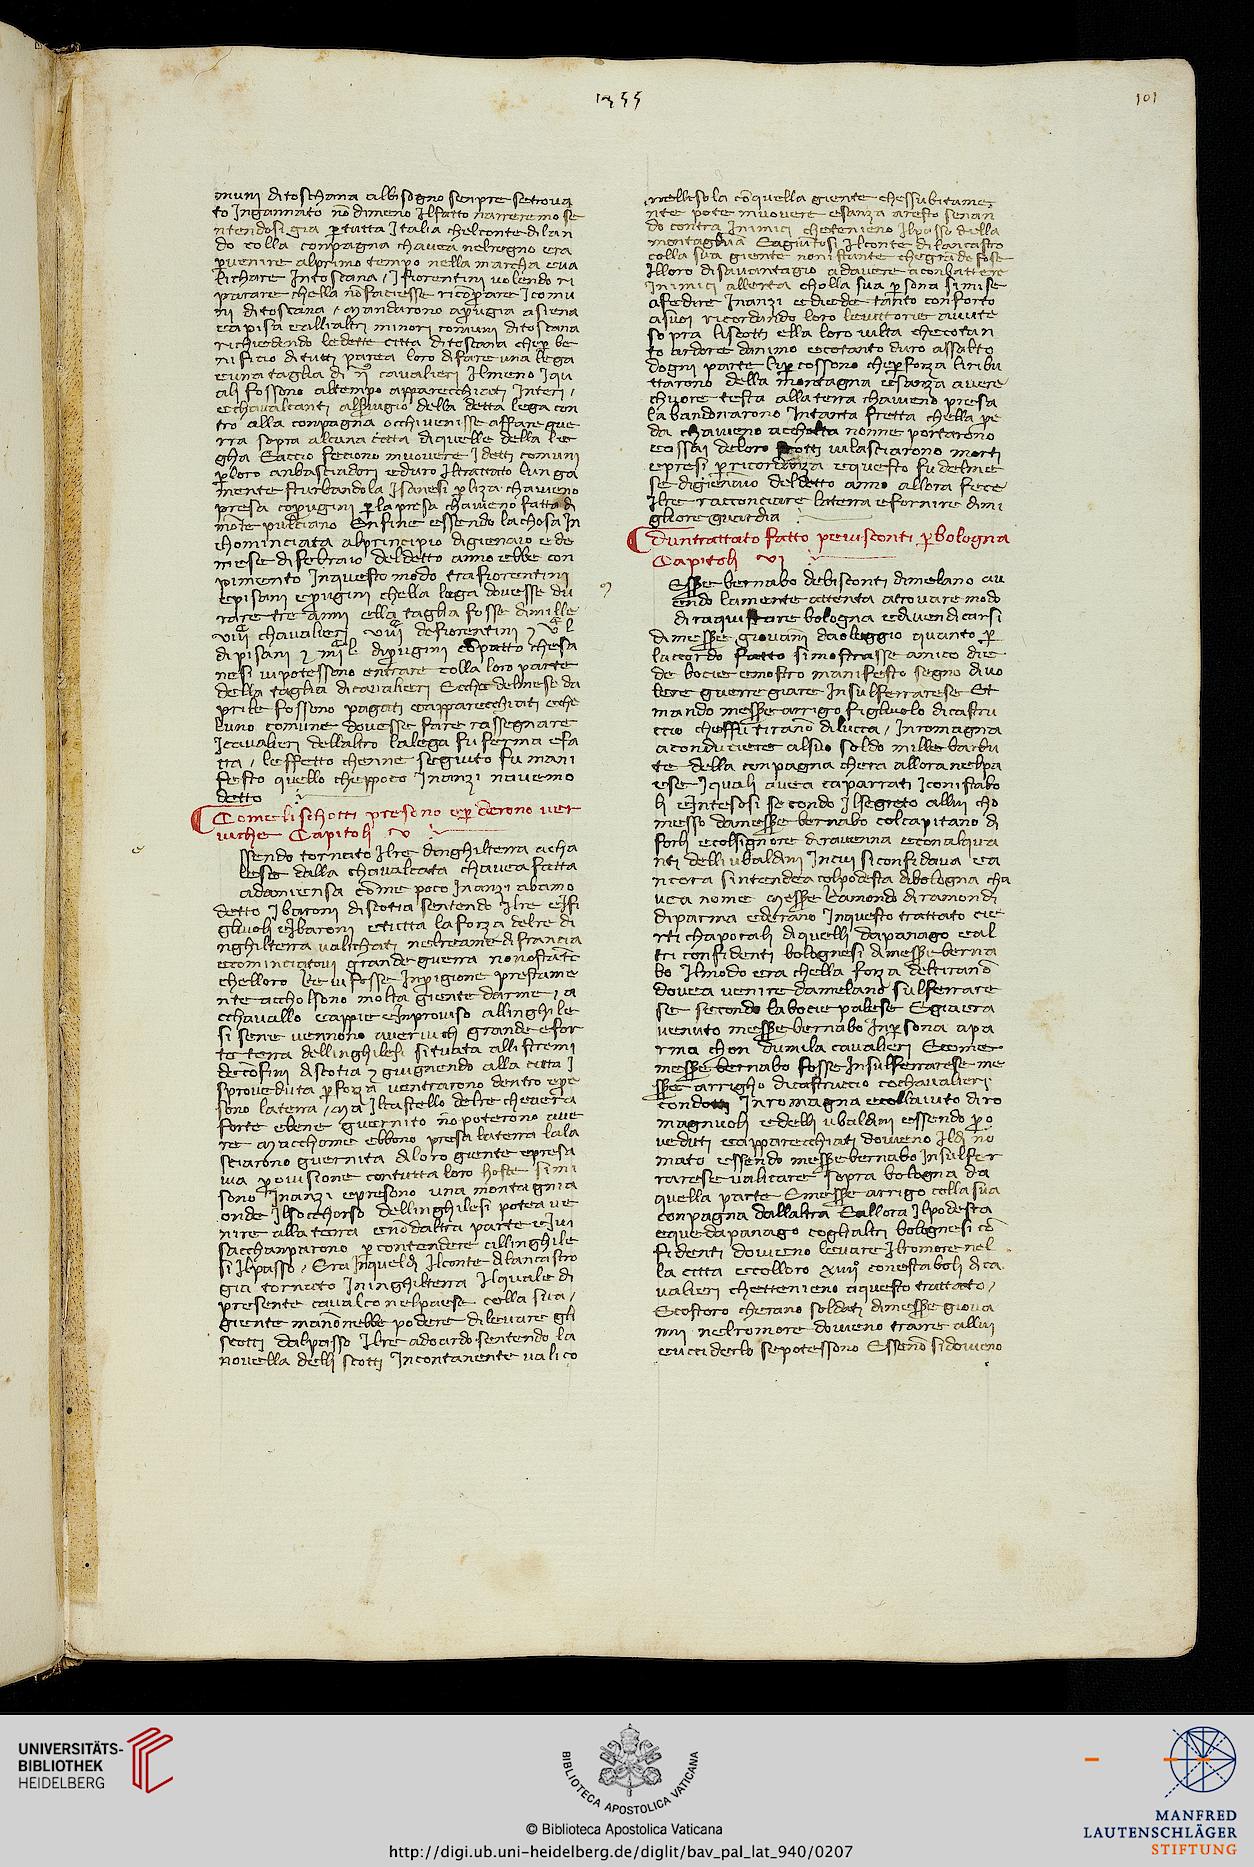 1355
101
muni di toschana albisogno senpre setrova
to Ingannato nō dimeno Ilfatto narreremo se
ntendosi gia p tutta Italia chelconte di lan
do colla conpagna chavea nelregno era
pvenire alprimo tempo nella marcha e va
lichare Intoscana / I fiorentini volendo ri
parare chella nō faciesse ricōprare I comu
ni di toscana / Mandarono apugia asiena
e apisa e allialtri minori comuni di toscana
richiedendo le dette citta di toscana che p be
nificio di tutti parea loro di fare una lega
e una taglia di cavalieri Ilmeno I qu
ali fossono altempo apparecchiati Interi /
e chavalcanti alsvugio della detta lega con
tro alla conpagna o cchi venisse affare gue
rra sopra alcuna citta di quelle della le
gha E accio feciono muovere I detti comuni
p loro anbasciadori e duro Iltrattato lunga
mente sturbandola I sanesi p liza chavieno
presa copugini p la presa chavieno fatta di
mōte pulciano Enfine essendo la chosa In
chominciata alprincipio di gienaio e de
mese di febraio del detto anno ebbe con
pimento Inquesto modo tra fiorentini
e pisani e pugini chella lega dovesse du
rare tre anni e lla taglia fosse di mille
viii chavalieri viii de fiorentini
di pisani di pugini cō patto che sa
nesi vi potessono entrare colla loro parte
della taglia di cavalieri E cche delmese da
prile fossono pagati e apparecchiati e che
luno comune dovesse fare rassegnare
I cavalieri dellaltro la lega fu ferma e fa
tta / leffetto chenne seguito fu mani
festo quello che ppoco Inanzi navemo
detto
Come li schotti presono e pderono ver
viche Capitolj v
ssendo tornato Ilre dinghilterra a cha
lese dalla chavalcata chavea fatta
adamiensa come poco Inanzi abiamo
detto I baroni di scotia sentendo Ilre e I fi
gliuoli e I baroni e tutta la forza del re di
nghilterra valichati nelreame di francia
e cominciatovi grande guerra nonostāte
chelloro Re vi fosse Inprigione prestame
nte accholsono molta giente darme / a
cchavallo e appie e Inproviso allinghile
si sene vennono a veruich grande e for
te terra dellinghilesi situata alli stremi
de cōfini di scotia e giugnendo alla citta I
sproveduta p forza ventrarono dentro e pe
sono la terra / Ma Ilcastello delre chevera
forte e bene guernito nō poterono ave
re Macchome ebbono presa la terra la la
sciarono guernita di loro giente e presa
via pvisione con tutta loro hoste si mi
sono Inanzi e presono una montagnia
onde Ilsocchorso dellinghilesi potea ve
nire alla terra e nō daltra parte e Ivi
sacchanparono p contendere allinghile
si Ilpasso / Era Inqueldi Ilconte di lancastro
gia tornato In inghilterra Ilquale di
presente cavalco nelpaese colla sua /
giente ma nōnebbe podere di levare gli
scotti dalpasso Ilre adoardo sentendo la
novella delli scotti Incontanente valico
nellisola cō quella giente chessubitame
nte pote muovere e sanza aresto senan
do contra Inimici chetenieno Ilpasso della
montagnia E agiuntosi Ilconte di lancastro
colla sua giente non istante chegrāde fosse
Illoro disavantagio adavere aconbattere
Inimici allerta cholla sua psona simise
afedire Inanzi e diede tanto conforto
a suoi ricordando loro levittorie avute
sopra liscotti e lla loro vilta che cotan
to ardore danimo e cotanto duro assalto
dogni parte lipcossono che pforza liributtarono
ttarono della montagna e sanza avere
chuore testa alla terra chavieno presa
labandonarono Intanta fretta chella pe
da chavieno accholta nonne portarono
e assai deloro scotti vi lasciarono morti
e presi p ricordanza e questo fu delme
se di gienaio del detto anno allora fece
Ilre racconciare laterra e fornire di mi
gliore guardia
Duntrattato fatto pe visconti p bologna
Capitolj vi
Esse bernabo de bisconti di melano av
endo lamente attenta atrovare modo
di raquistare bologna e di vendicarsi
di messe giovani da oleggio quanto p
lacordo fatto si mostrasse amico die
de bocie e mostro manifesto segno di vo
lere guerregiare Insulferrarese Et
mando messe arrigo figliuolo di castru
ccio cheffu tiranō di lucca / Inromagna
a conduciere alsuo soldo mille barbu
te della conpagna chera allora nelpa
ese I quali avea caparrati I conistabo
li e Intesosi secondo Ilsegreto allui cho
messo da messe bernabo colcapitano di
forli e colsignore diravenna e con alqua
nti delli ubaldini Incui si confidava e a
ncora sintendea colpodesta di bologna cha
vea nome Messe Ramondo diramondi
di parma ed erano Inquesto trattato cie
rti chaporali di quelli dapanago e al
tri confidenti bolognesi di messe berna
bo Ilmodo era chella forza deltiranō
dovea venire da melano sulferrare
se secondo la bocie palese E gia era
venuto messe bernabo Inpsona apa
rma chon dumila cavalieri E come
messe bernabo fosse Insulferrarese me
sse arrigho di castruccio cochavalieri
condotti Inromagna e collaiuto di ro
magniuoli e delli ubaldini essendo p
veduti e apparecchiati dovieno Ildi no
mato essendo messe bernabo Insulfer
rarese valicare sopra bologna da
quella parte E messe arrigo colla sua
conpagna dallaltra E allora Ilpodesta
e que dapanago cogli altri bolognesi cō
fidenti dovieno levare Ilromore nel
la citta e colloro xviii conestaboli di ca
valieri chettenieno a questo trattato /
E costoro cherano soldati di messe giova
nni nelromore dovieno trarre allui
e uccidello sepotessono E sse nō si dovieno
UNIVERSITÄTS-
BIBLIOTHEK
HEIDELBERG
BIBLIOTECA APOSTOLICA VATICANA
© Biblioteca Apostolica Vaticana
http://digi.ub.uni-heidelberg.de/diglit/bav_pal_lat_940/0207
MANFRED
LAUTENSCHLÄGER
STIFTUNG